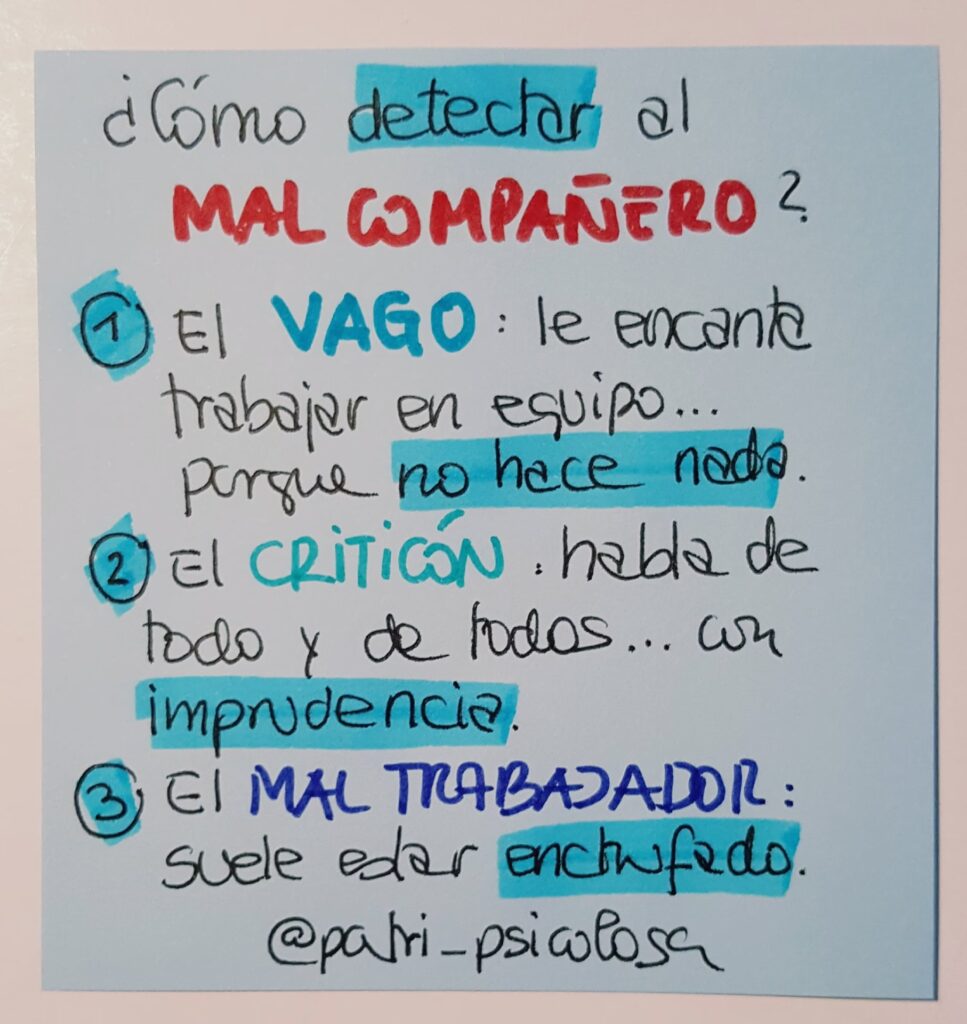 ¿Cómo detectar al
MAL COMPAÑERO?
1 El VAGO: le encanta
trabajar en equipo...
porque no hace nada.
2 El CRITICÓN: habla de
todo y de todos... con
imprudencia.
3 El MAL TRABAJADOR:
suele estar enchufado.
@patri_psicologa